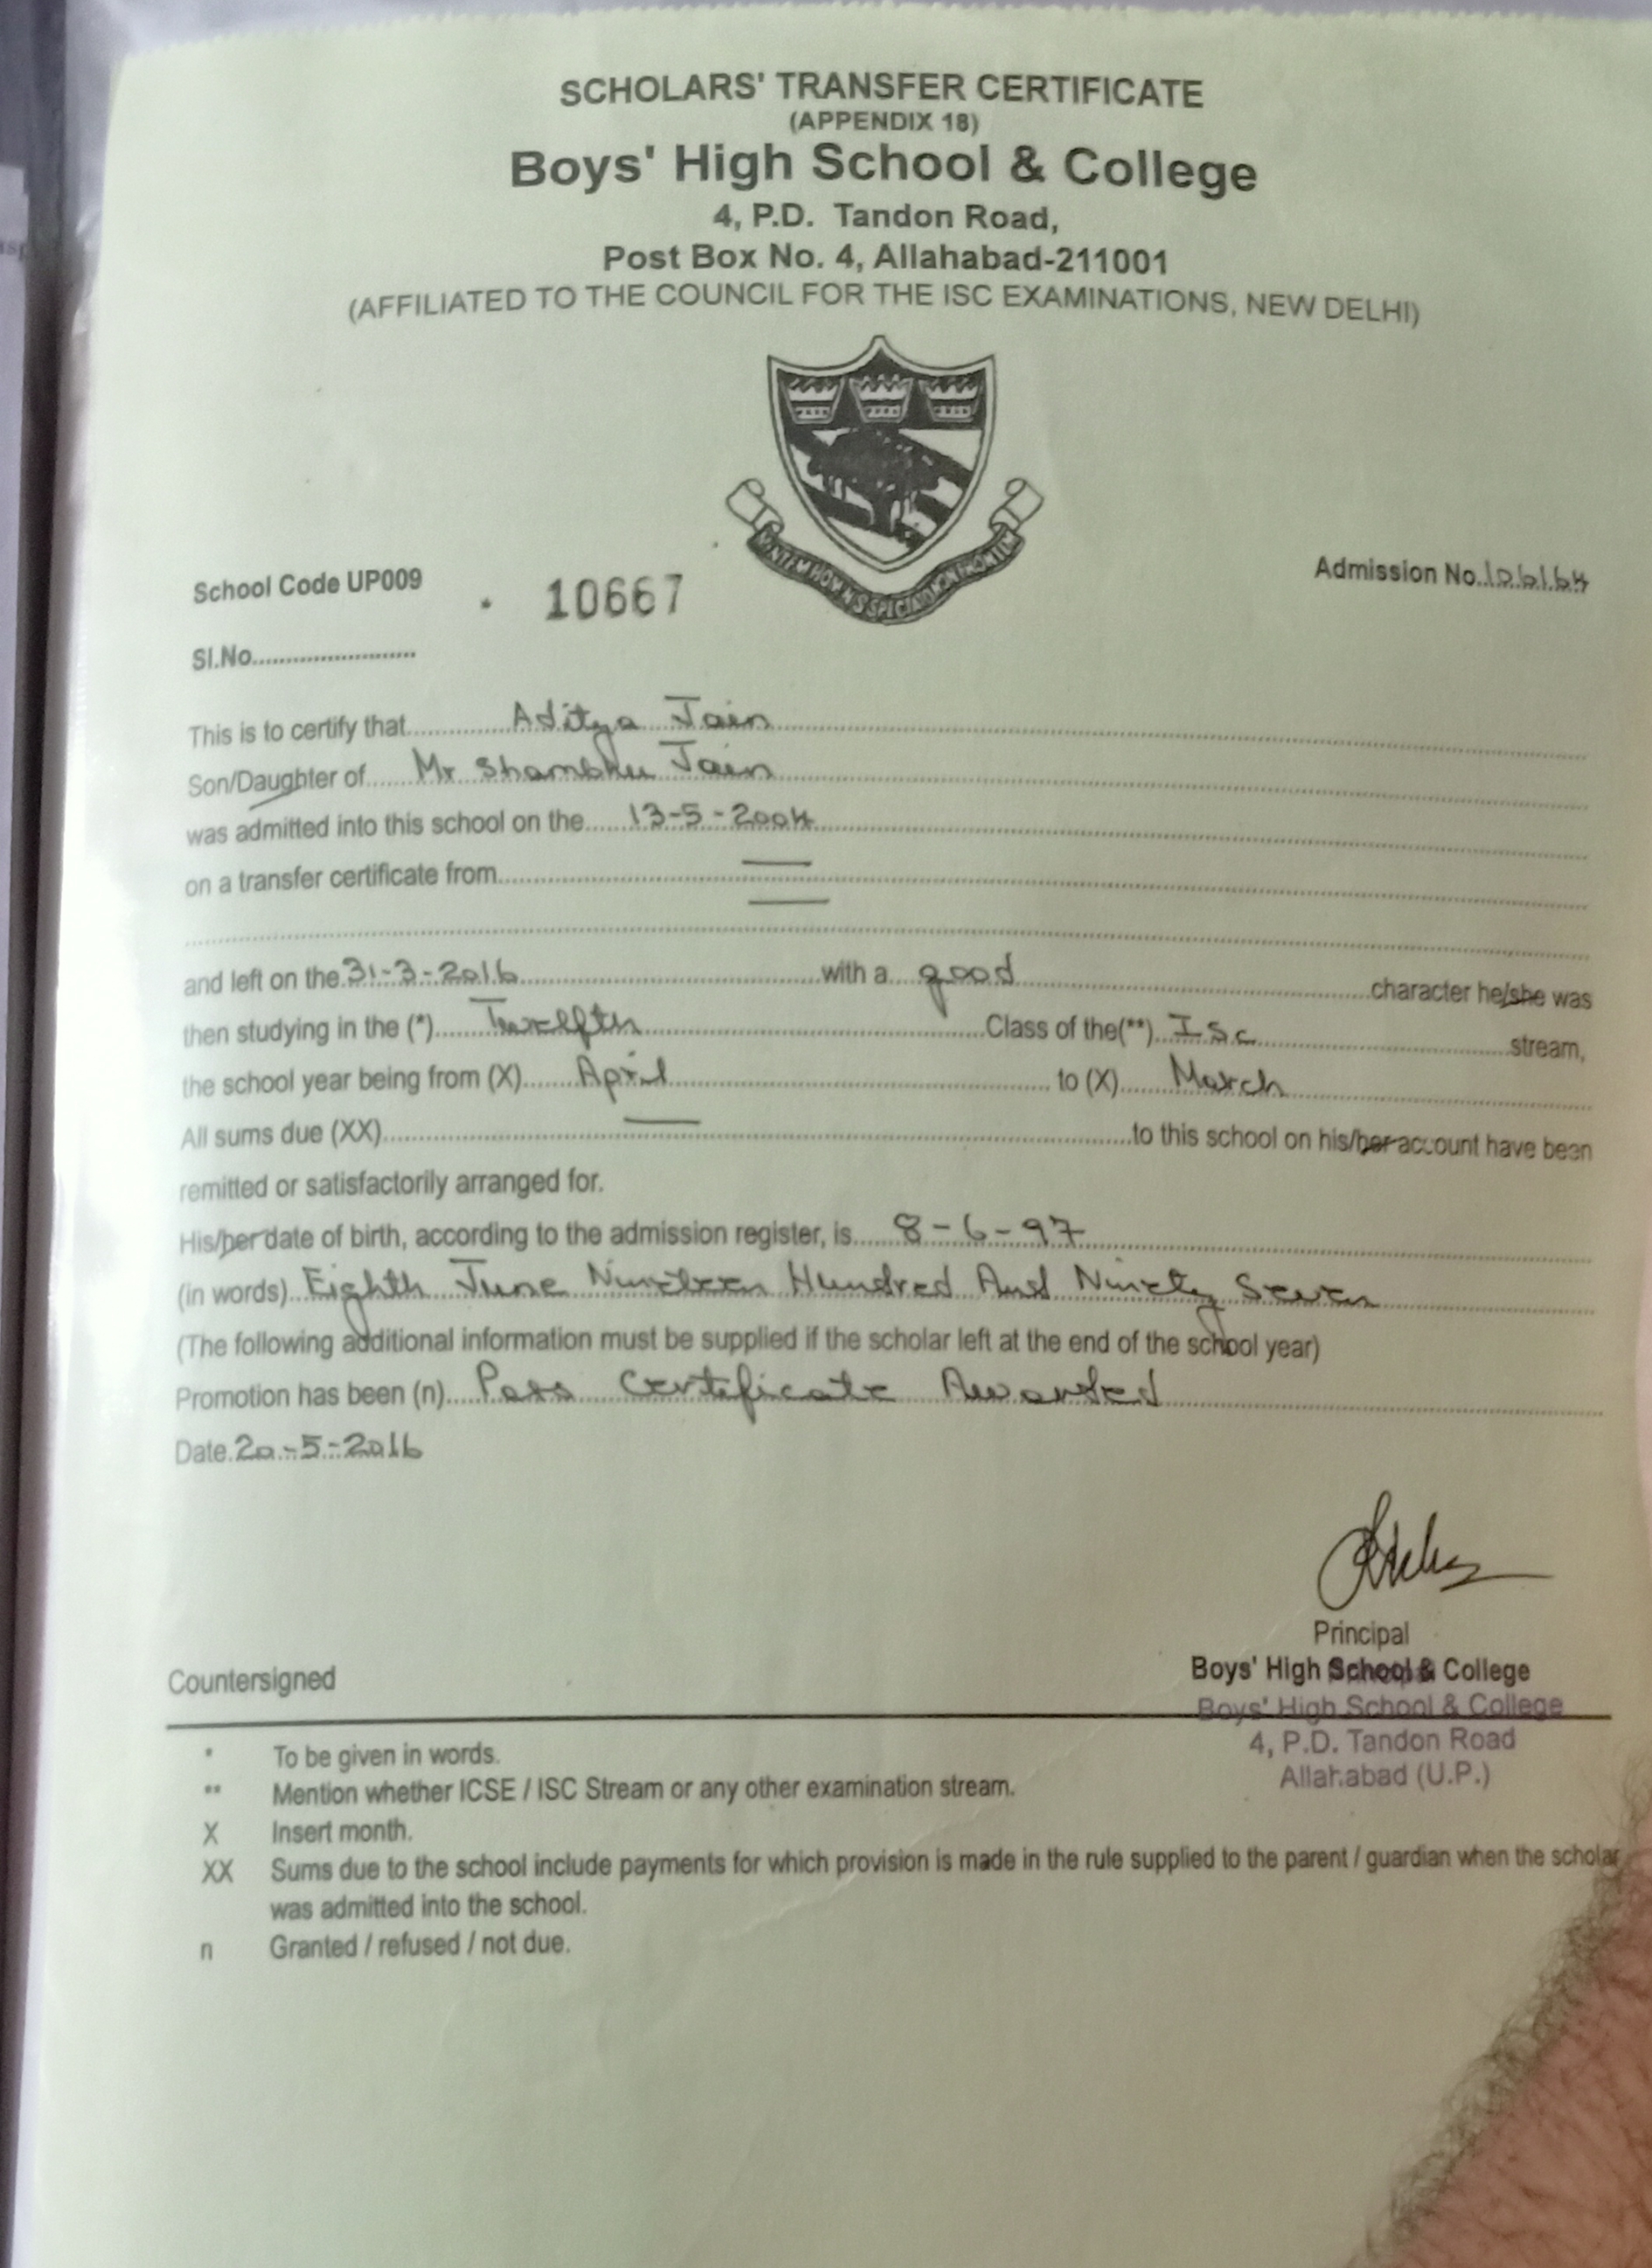 SCHOLARS' TRANSFER CERTIFICATE
(APPENDIX 18)
Boys' High School & College
4, P.D. Tandon Road,
Post Box No. 4, Allahabad-211001
(AFFILIATED TO THE COUNCIL FOR THE ISC EXAMINATIONS, NEW DELHI)
School Code UP009 10667 Admission No.
Sl.No........................
This is to certify that Aditya Jain
Son/Daughter of Mr Shambhu Jain
was admitted into this school on the 13-5-2004
on a transfer certificate from
and left on the 31-3-2016 with a good character he/she was
then studying in the (*) Twelfth Class of the(**) ISc stream,
the school year being from (X) April to (X) March
All sums due (XX) — to this school on his/her account have been
remitted or satisfactorily arranged for.
His/her date of birth, according to the admission register, is 8-6-97
(in words) Eighth June Nineteen Hundred And Ninety Seven
(The following additional information must be supplied if the scholar left at the end of the school year)
Promotion has been (n) Pass Certificate Awarded
Date 20-5-2016
Principal
Countersigned Boys' High School & College
Boys' High School & College
4, P.D. Tandon Road
Allahabad (U.P.)
* To be given in words.
** Mention whether ICSE / ISC Stream or any other examination stream.
X Insert month.
XX Sums due to the school include payments for which provision is made in the rule supplied to the parent / guardian when the scholar
was admitted into the school.
n Granted / refused / not due.